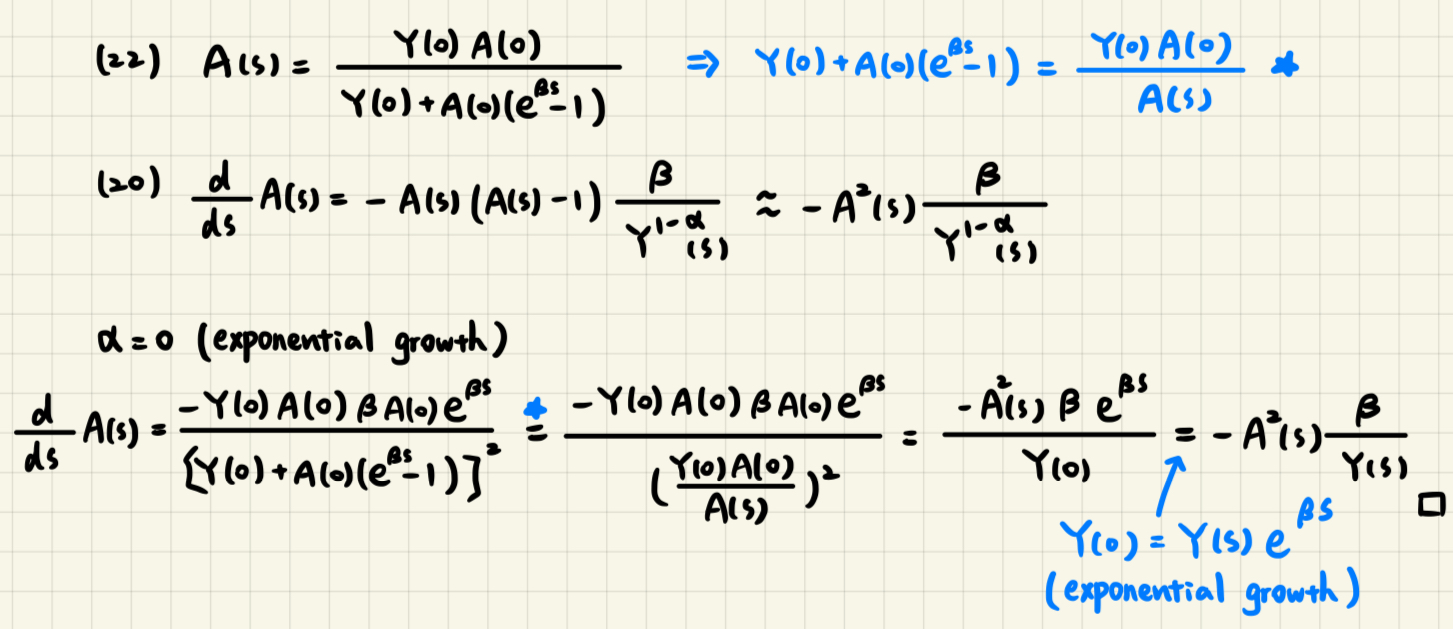 (22) A(s) = Y(0) A(0) / Y(0) + A(0)(e^{βs} - 1) ⇒ Y(0) + A(0)(e^{βs} - 1) = Y(0) A(0) / A(s) ★
(20) d/ds A(s) = - A(s) (A(s) - 1) β / Y^{1-α}(s) ≈ - A²(s) β / Y^{1-α}(s)
α = 0 (exponential growth)
d/ds A(s) = -Y(0) A(0) β A(0) e^{βs} / [Y(0) + A(0)(e^{βs} - 1)]² ★= -Y(0) A(0) β A(0) e^{βs} / (Y(0) A(0) / A(s))² = -A²(s) β e^{βs} / Y(0) = - A²(s) β / Y(s) □
Y(0) = Y(s) e^{βs}
(exponential growth)